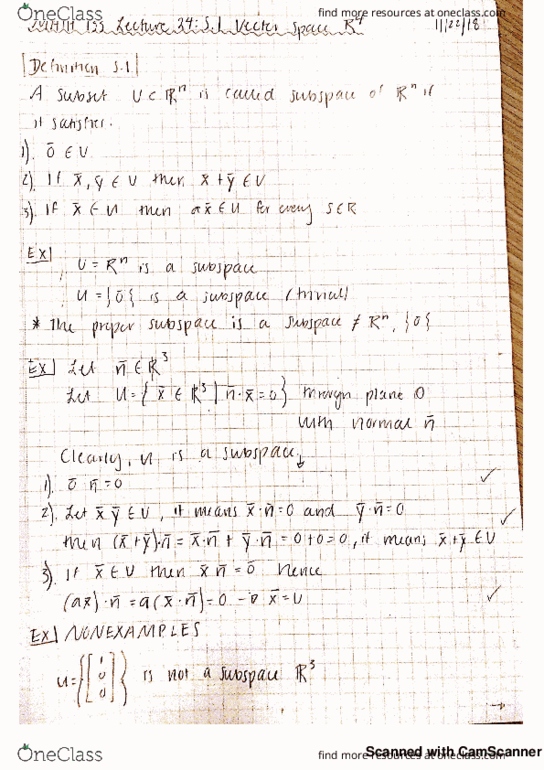 OneClass
find more resources at oneclass.com
133 Lecture 34: 5.1 Vector space R^n 11/22/18
Definition 5.1
A subset U ⊂ R^n is called subspace of R^n if
it satisfies.
1). ō ∈ U
2). If x̄, ȳ ∈ U then x̄ + ȳ ∈ U
3). If x̄ ∈ U then ax̄ ∈ U for every s∈R
Ex]
U = R^n is a subspace
U = {ō} is a subspace (trivial)
* The proper subspace is a subspace ≠ R^n, {ō}
Ex] Let n̄ ∈ R^3
Let U = { x̄ ∈ R^3 | n̄·x̄ = 0} through plane 0
with normal n̄
Clearly, U is a subspace ↓
1). ō n̄ = 0 ✓
2). Let x̄ ȳ ∈ U, it means x̄·n̄ = 0 and ȳ·n̄ = 0 ✓
then (x̄+ȳ)·n̄ = x̄·n̄ + ȳ·n̄ = 0+0=0, it means x̄+ȳ ∈ U
3). If x̄ ∈ U then x̄ n̄ = ō hence
(ax̄)·n̄ = a(x̄·n̄) = 0 → x̄ = U ✓
Ex] NONEXAMPLES
U = {[1 0 0]} is not a subspace R^3
→
OneClass
find more resources at oneclass.com
Scanned with CamScanner